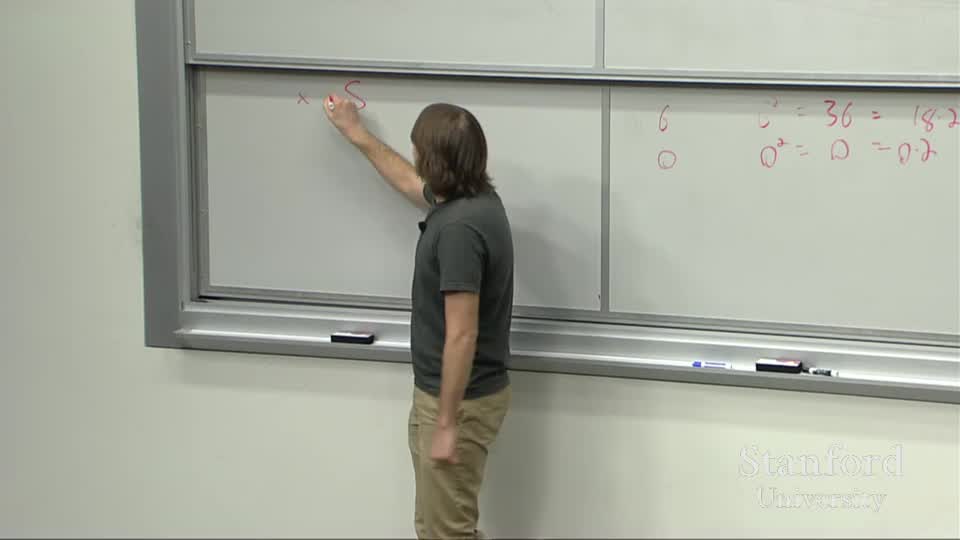 x S
6 6² = 36 = 18·2
0 0² = 0 = 0·2
Stanford
University